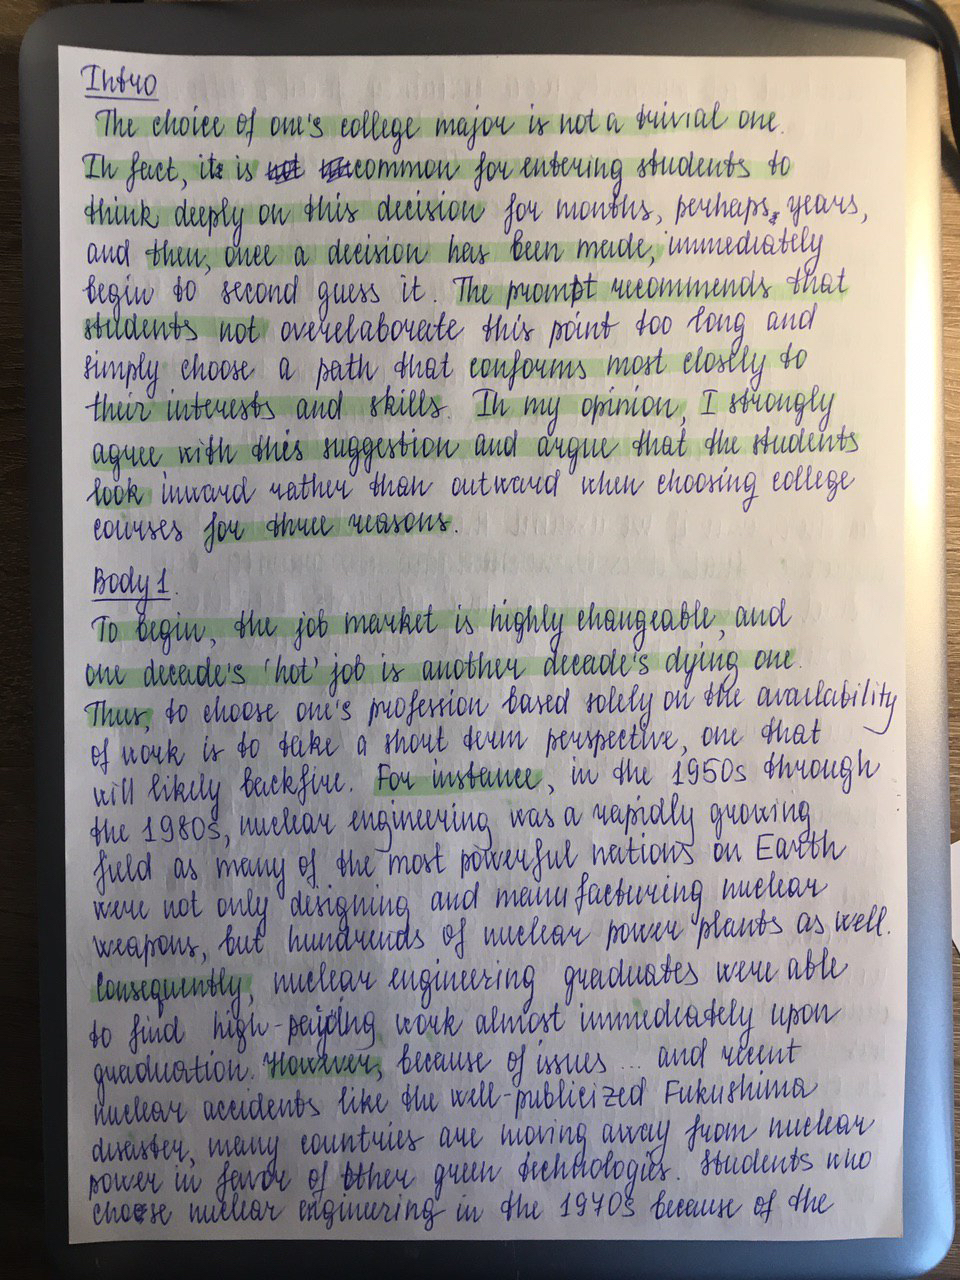 Intro
The choice of one's college major is not a trivial one.
In fact, it is common for entering students to
think deeply on this decision for months, perhaps, years,
and then, once a decision has been made, immediately
begin to second guess it. The prompt recommends that
students not overelaborate this point too long and
simply choose a path that conforms most closely to
their interests and skills. In my opinion, I strongly
agree with this suggestion and argue that the students
look inward rather than outward when choosing college
courses for three reasons.
Body 1.
To begin, the job market is highly changeable, and
one decade's 'hot' job is another decade's dying one.
Thus, to choose one's profession based solely on the availability
of work is to take a short term perspective, one that
will likely backfire. For instance, in the 1950s through
the 1980s, nuclear engineering was a rapidly growing
field as many of the most powerful nations on Earth
were not only designing and manufacturing nuclear
weapons, but hundrends of nuclear power plants as well.
Consequently, nuclear engineering graduates were able
to find high-paying work almost immediately upon
graduation. However, because of issues ... and recent
nuclear accidents like the well-publicized Fukushima
disaster, many countries are moving away from nuclear
power in favor of other green technologies. Students who
chose nuclear engineering in the 1970s because of the